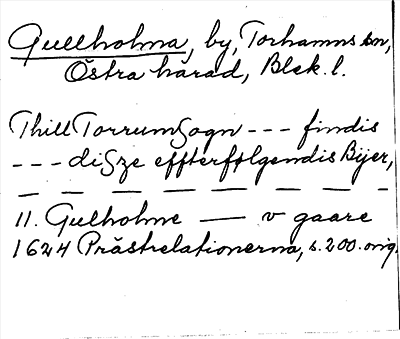 Gullholma, by, Torhamns sn,
Östra härad, Blek. l.
Thill Torrum Sogn --- findis
--- diSze effterfølgendis Bÿer,
— — — — — — — —
11. Gulholme — v gaare
1624 Prästrelationerna, s. 200. orig.